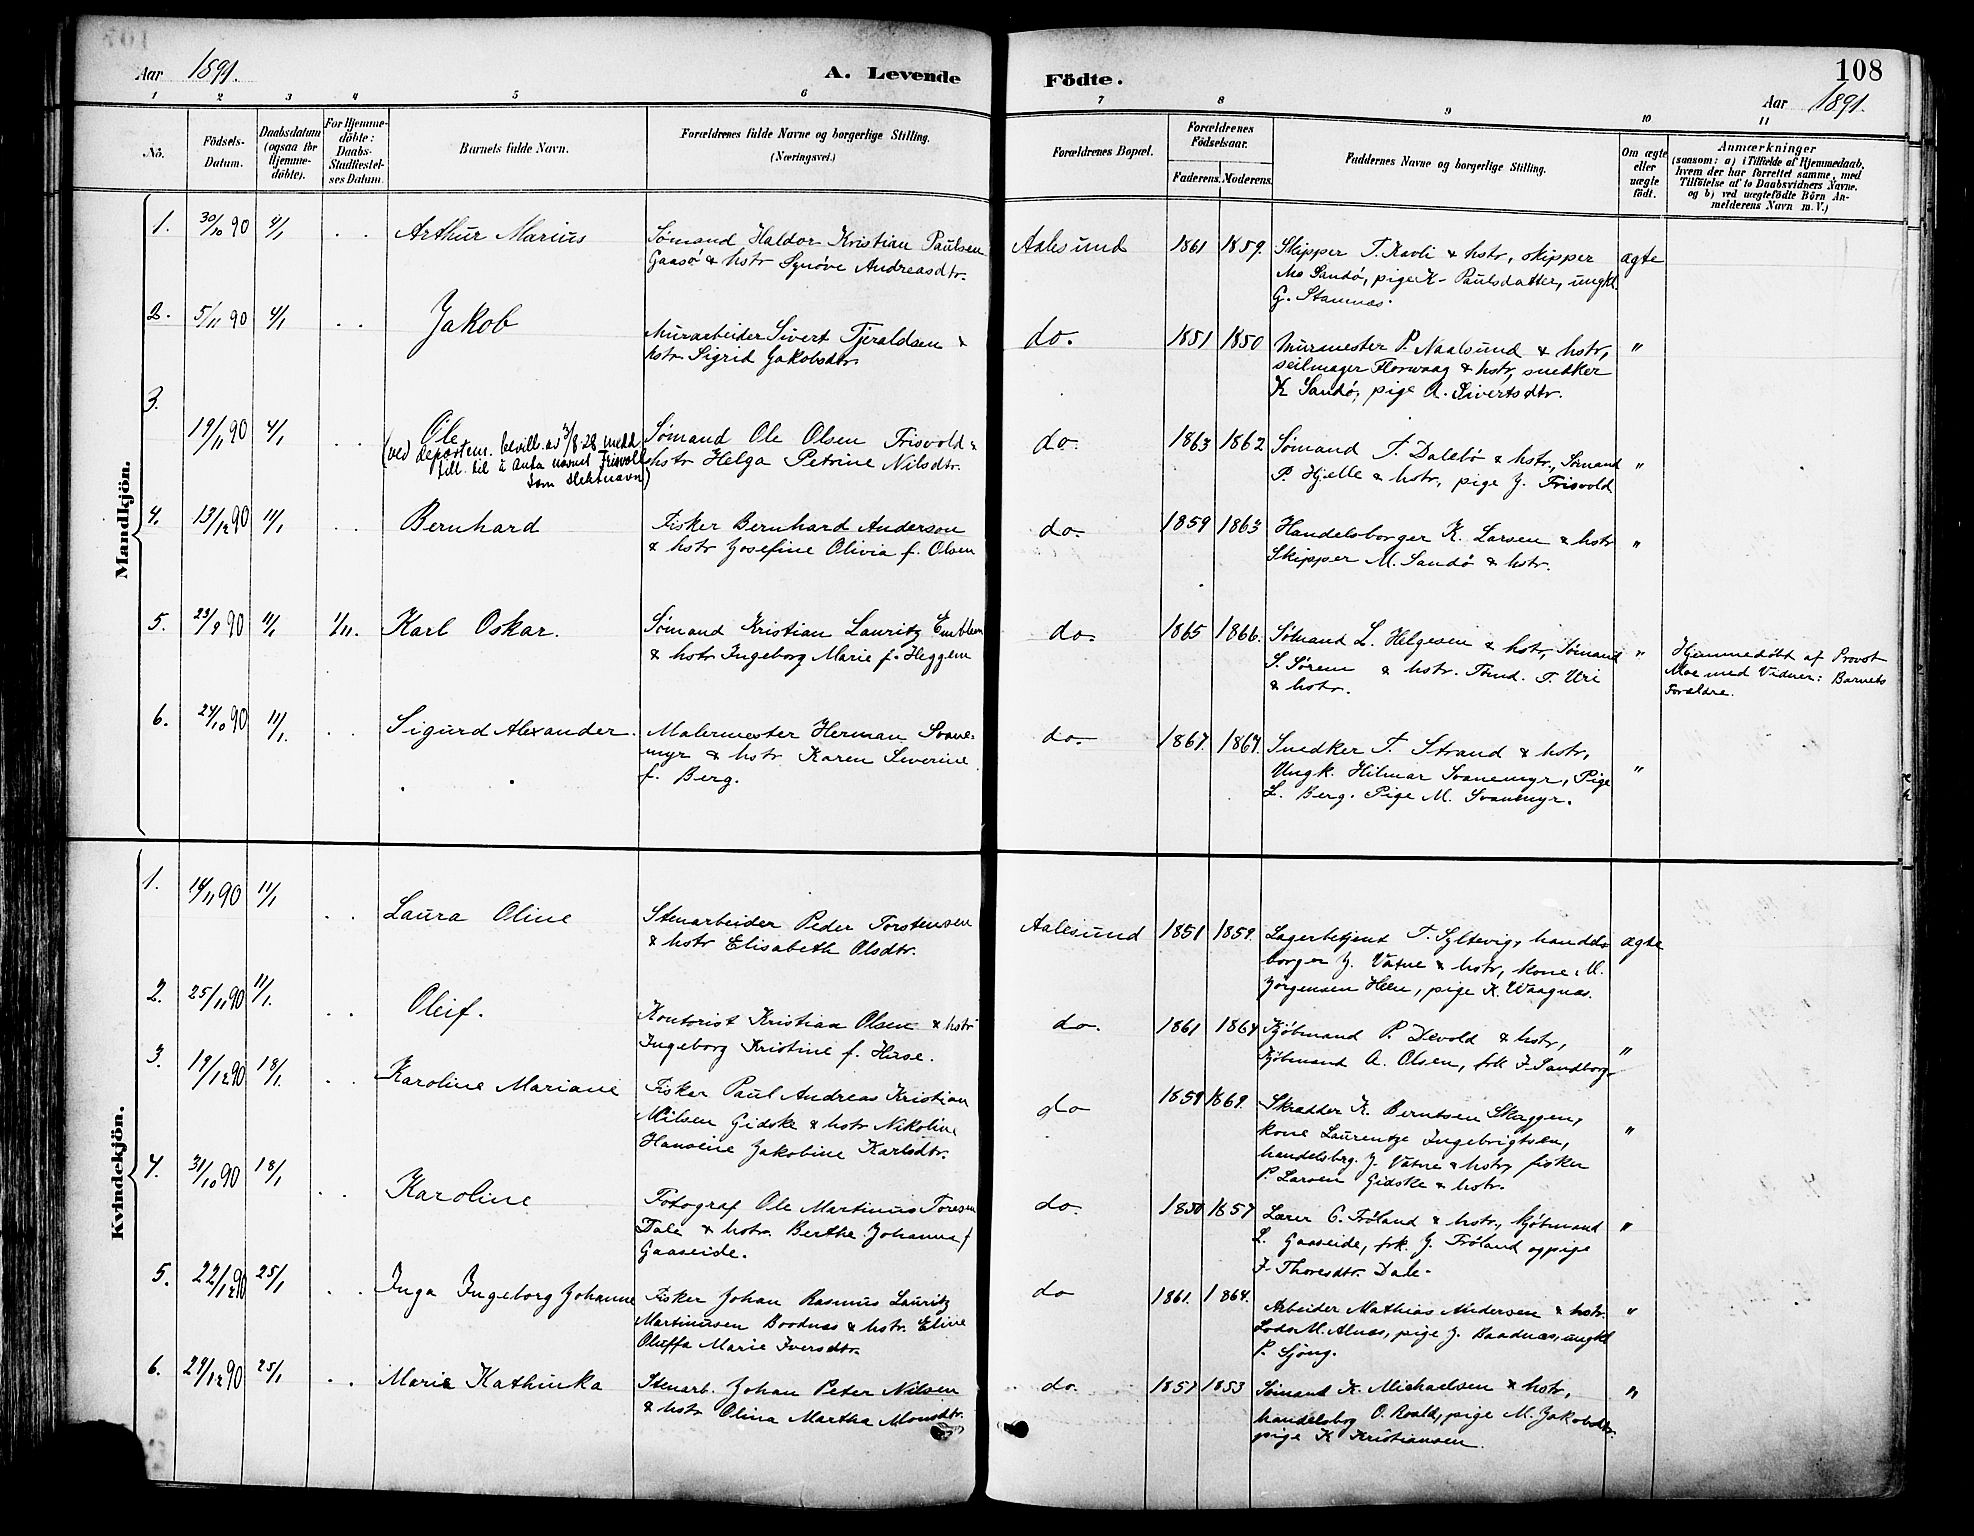 108
Aar 1891.
A. Levende Födte.
Aar 1891.
1 2 3 4 5 6 7 8 9 10 11
No.
Födsels-Datum.
Daabsdatum (ogsaa for Hjemme-döbte).
For Hjemme-döbte: Daabs-Stadfæstel-ses Datum.
Barnets fulde Navn.
Forældrenes fulde Navne og borgerlige Stilling.
(Næringsvei.)
Forældrenes Bopæl.
Forældrenes Födselsaar.
Faderens. Moderens.
Faddernes Navne og borgerlige Stilling.
Om ægte eller uægte födt.
Anmærkninger
(saasom: a) i Tilfælde af Hjemmedaab,
hvem der har forrettet samme, med
Tilföielse af to Daabsvidners Navne.
og b) ved uægtefödte Börn An-
melderens Navn m. V.)
Mandkjön.
1. 30/10 90 4/1 . . Arthur Marius
Sømand Haldor Kristian Paulsen
Gaasø & hstr Synøve Andreasdtr.
Aalesund 1861 1859.
Skipper T. Kavli & hstr, skipper
Mo Sandø, pige K. Paulsdatter, ungk.
G. Stamnes.
ægte
2. 5/11 90 4/1 . . Jakob
Murarbeider Sivert Fjeraldsen &
hstr Sigrid Jakobsdtr.
do. 1851 1850
Murmester P. Naalsund & hstr,
seilmager Florvaag & hstr, snedker
K Sandø, pige A. Sivertsdtr.
"
3. 19/11 90 4/1 . . Ole
(ved departem. bevill. av 3/8-28 medd
till. til å anta navnet Frisvoll
som slektnavn)
Sømand Ole Olsen Frisvold &
hstr Helga Petrine Nilsdtr.
do. 1863 1862
Sømand T. Dalebø & hstr., Sømand
P. Hjelle & hstr, pige J. Frisvold
"
4. 13/12 90 11/1 . . Bernhard
Fisker Bernhard Anderson
& hstr Josefine Olivia f. Olsen
do. 1859 1863
Handelsborger K. Larsen & hstr
Skipper M. Sandø & hstr.
"
5. 23/9 90 11/1 1/11. Karl Oskar.
Sømand Kristian Lauritz Emblem
& hstr. Ingeborg Marie f. Heggem
do. 1865 1866.
Sømand L. Helgesen & hstr, Sømand
S. Sørem & hstr. Tømd. T. Uri
& hstr.
"
Hjemmedøbt af Provst
Moe med Vidner: Barnets
Forældre.
6. 24/10 90 11/1. . . Sigurd Alexander.
Malermester Herman Svane-
myr & hstr Karen Severine
f. Berg.
do. 1867 1867.
Snedker T. Strand & hstr,
Ungk. Hilmar Svanemyr, Pige
L. Berg. Pige M. Svanemyr.
"
Kvindekjön.
1. 14/11 90 11/1 . . Laura Oline
Stenarbeider Peder Torstensen
& hstr Elisabeth Olsdtr.
Aalesund 1851 1859.
Lagerbetjent T. Syltevig, handels
borger J. Vatne & hstr, kone M.
Jørgensen Hlen, pige K. Waagnæs.
ægte
2. 25/11 90 11/1. . . Oleif.
Kontorist Kristian Olsen & hstr
Ingeborg Kristine f. Huse.
do. 1861 1864
Kjøbmand P. Devold & hstr,
Kjøbmand A. Olsen, frk J. Sandborg
"
3. 19/12 90 18/1. . . Karoline Mariane
Fisker Paul Andreas Kristian
Nilsen Gidske & hstr Nikoline
Hanseine Jakobine Karlsdtr.
do 1859 1869.
Skrædder K. Berntsen Skaggen,
kone Laurentze Ingebrigtsen,
handelsbrg. J. Vatne & hstr, fisker
P. Larsen Gidske & hstr.
"
4. 31/10 90 18/1 . . Karoline
Fotograf Ole Martinus Toresen
Dale & hstr. Berthe Johanna f
Gaaseide.
do. 1850 1857
Lærer C. Frøland & hstr., kjøbmand
L. Gaaseide, frk. J. Frøland og pige
J. Thoresdtr. Dale.
"
5. 22/12 90 25/1 . . Inga Ingeborg Johanne
Fisker Johan Rasmus Lauritz
Martinusen Boodnæs & hstr. Eline
Oluffa Marie Iversdtr.
do 1861. 1864.
Arbeider Mathias Andersen & hstr.
Lods M. Alnæs, pige J. Baadnæs, ungkl
P. Sjöng.
"
6. 29/12 90 25/1 . . Marie Kathinka
Stenarb. Johan Peter Nilsen
& hstr Olina Martha Monsdtr.
do. 1857 1853
Sømand K. Michaelsen & hstr,
handelsborg O. Roald, pige M. Jakobsdtr.
pige K Kristiansen.
"